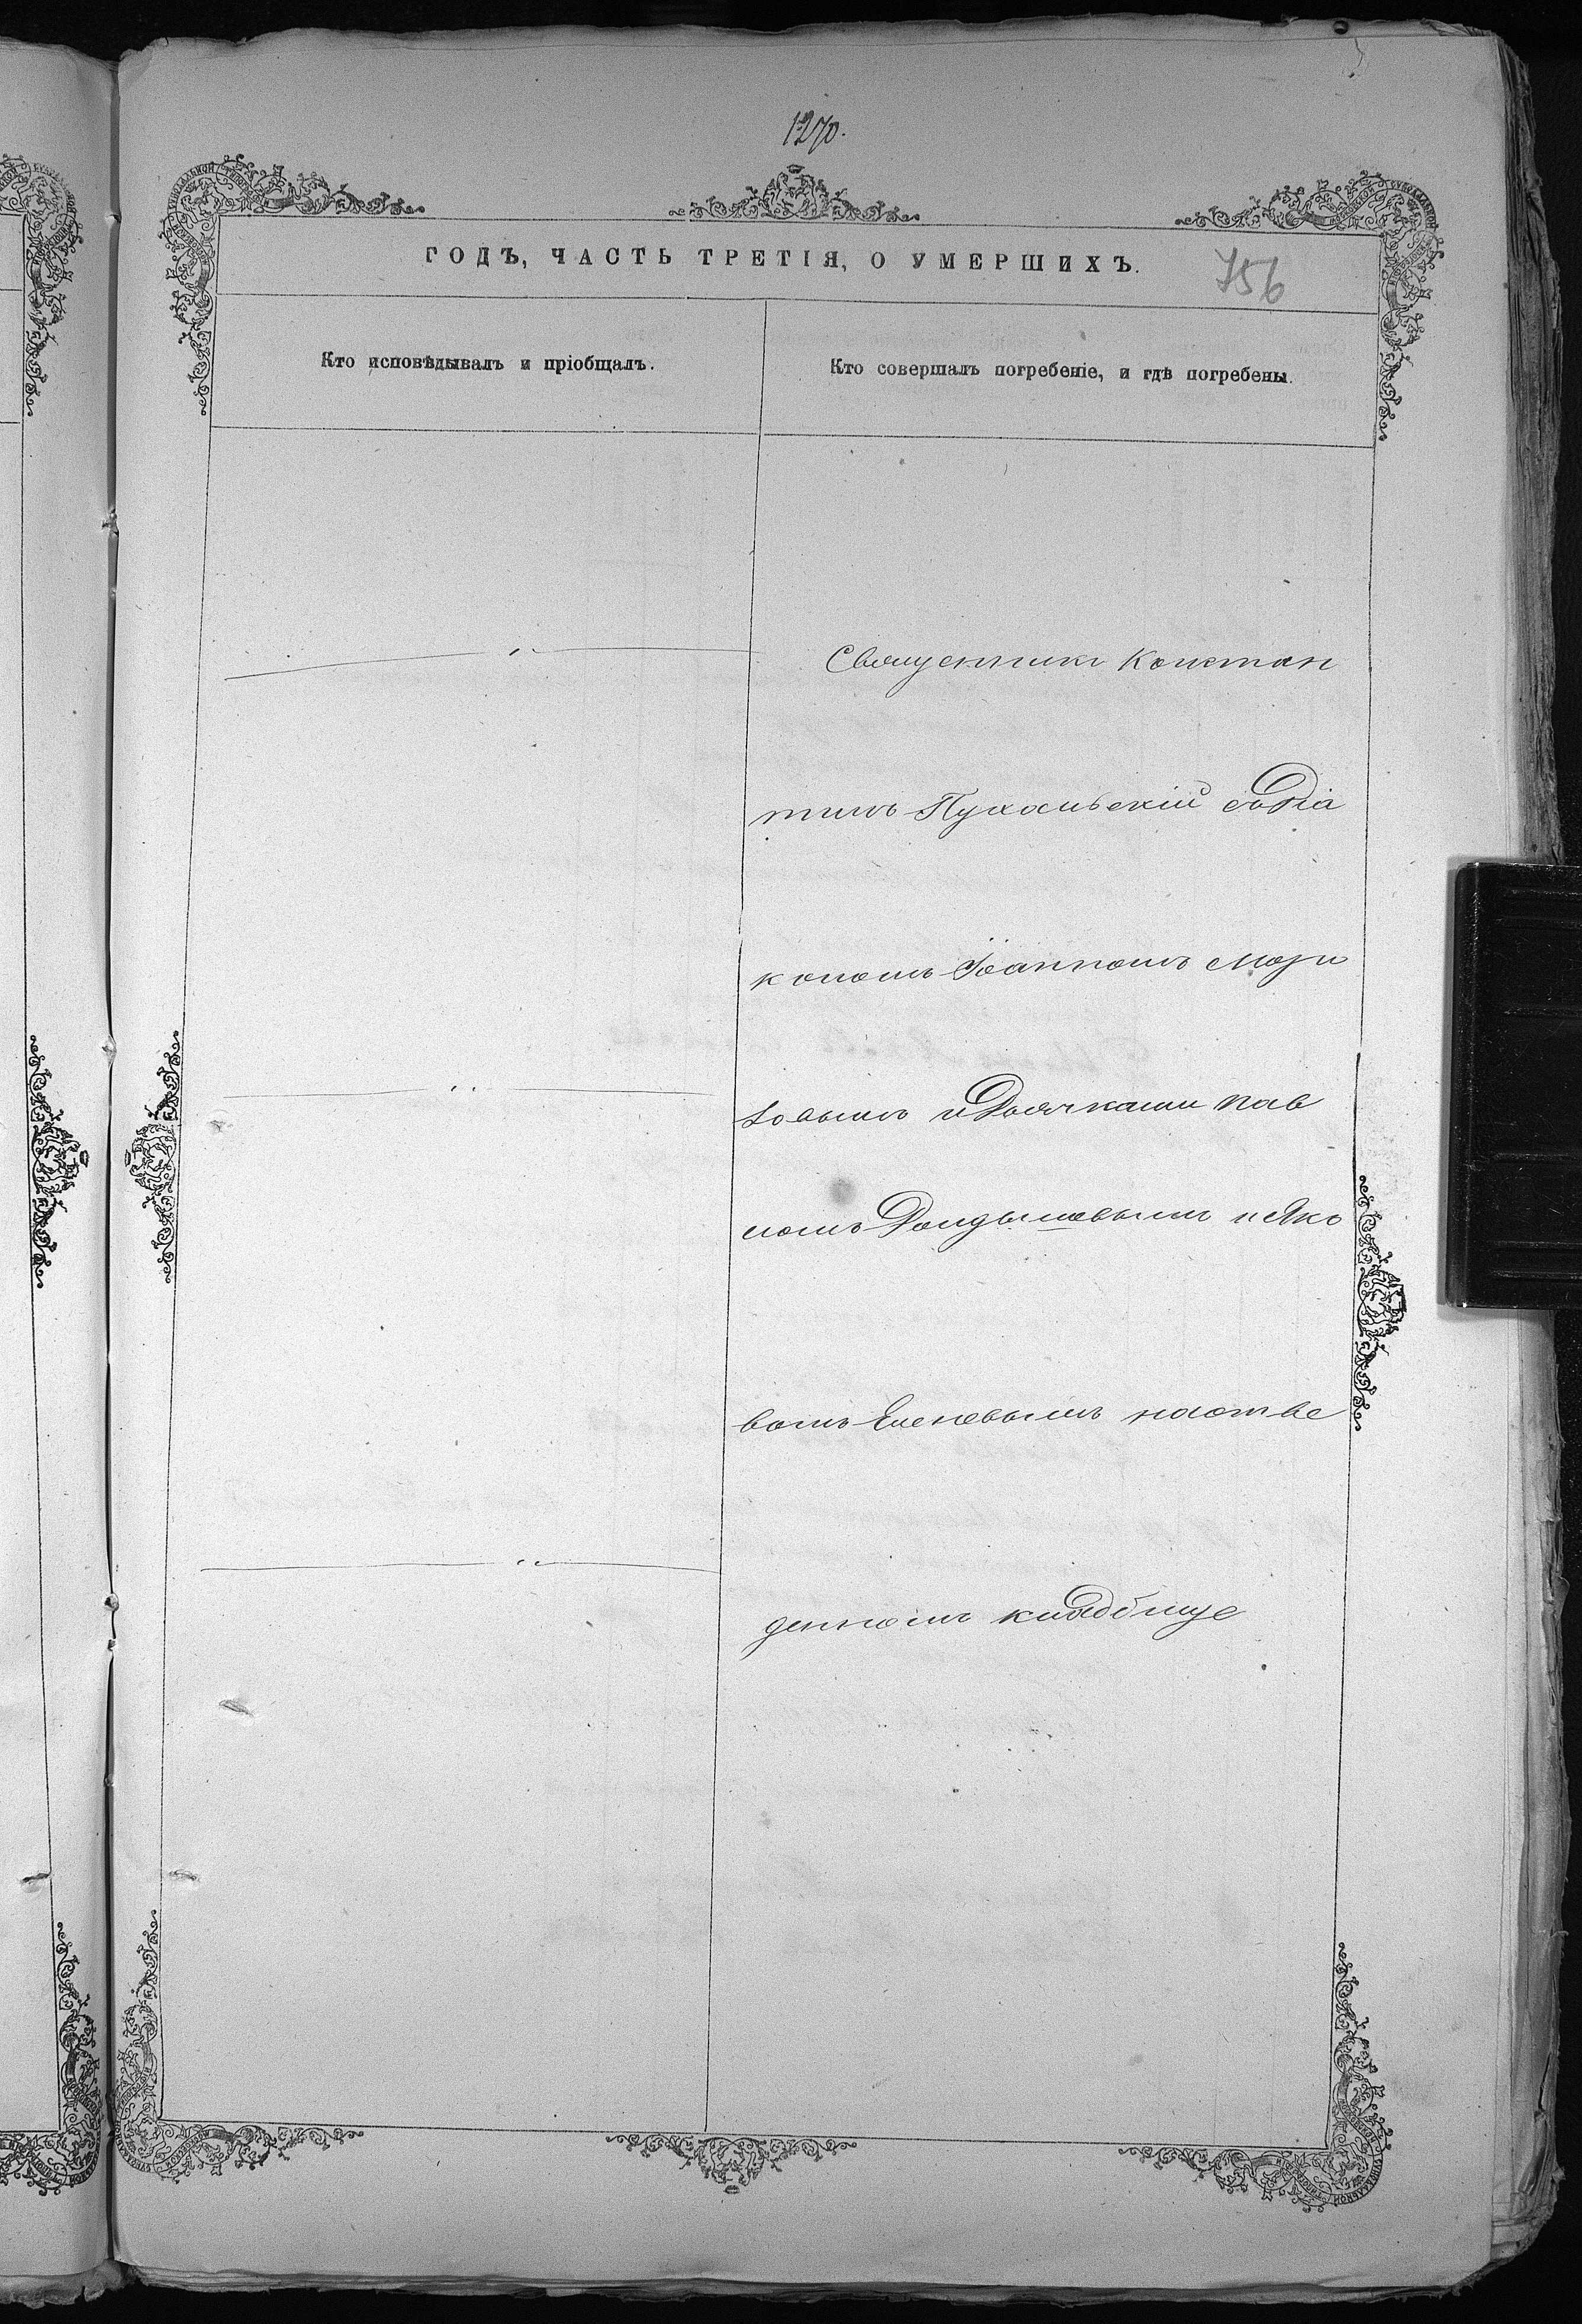 1270.
ГОДЪ, ЧАСТЬ ТРЕТІЯ, О УМЕРШИХЪ.
756
Кто исповѣдывалъ и пріобщалъ.
Кто совершалъ погребеніе, и гдѣ погребены.
Священникъ Констан
тинъ Пухальскій съ діа
кономъ Іоанномъ
и дьячками Пав
ломъ и Яко
вомъ наотве
денномъ кладбище